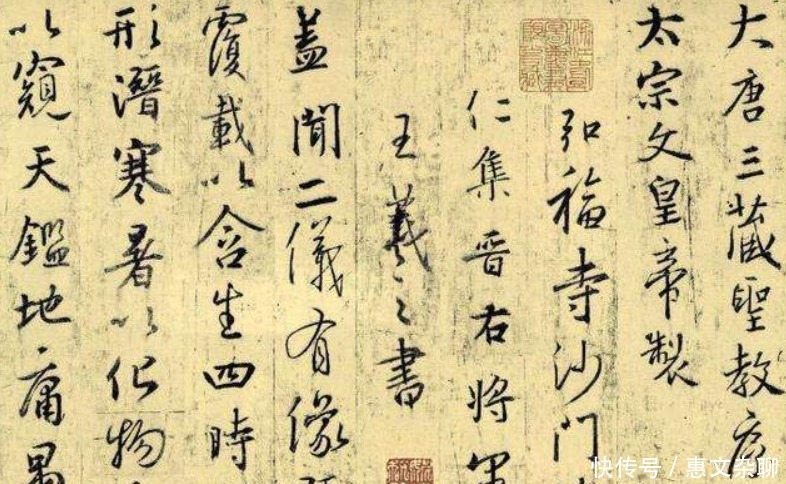 大唐三藏聖教序
太宗文皇帝製
弘福寺沙門
仁集晋右将軍
王羲之書
盖聞二儀有像
覆載以含生四時
形潛寒暑以化物
以窺天鑑地庸愚
快传号/惠文杂聊